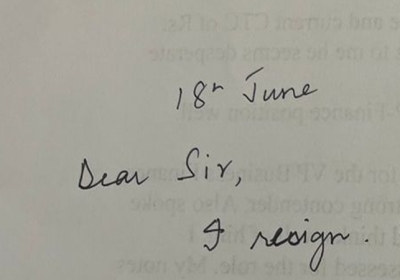 18th June
Dear Sir,
I resign.